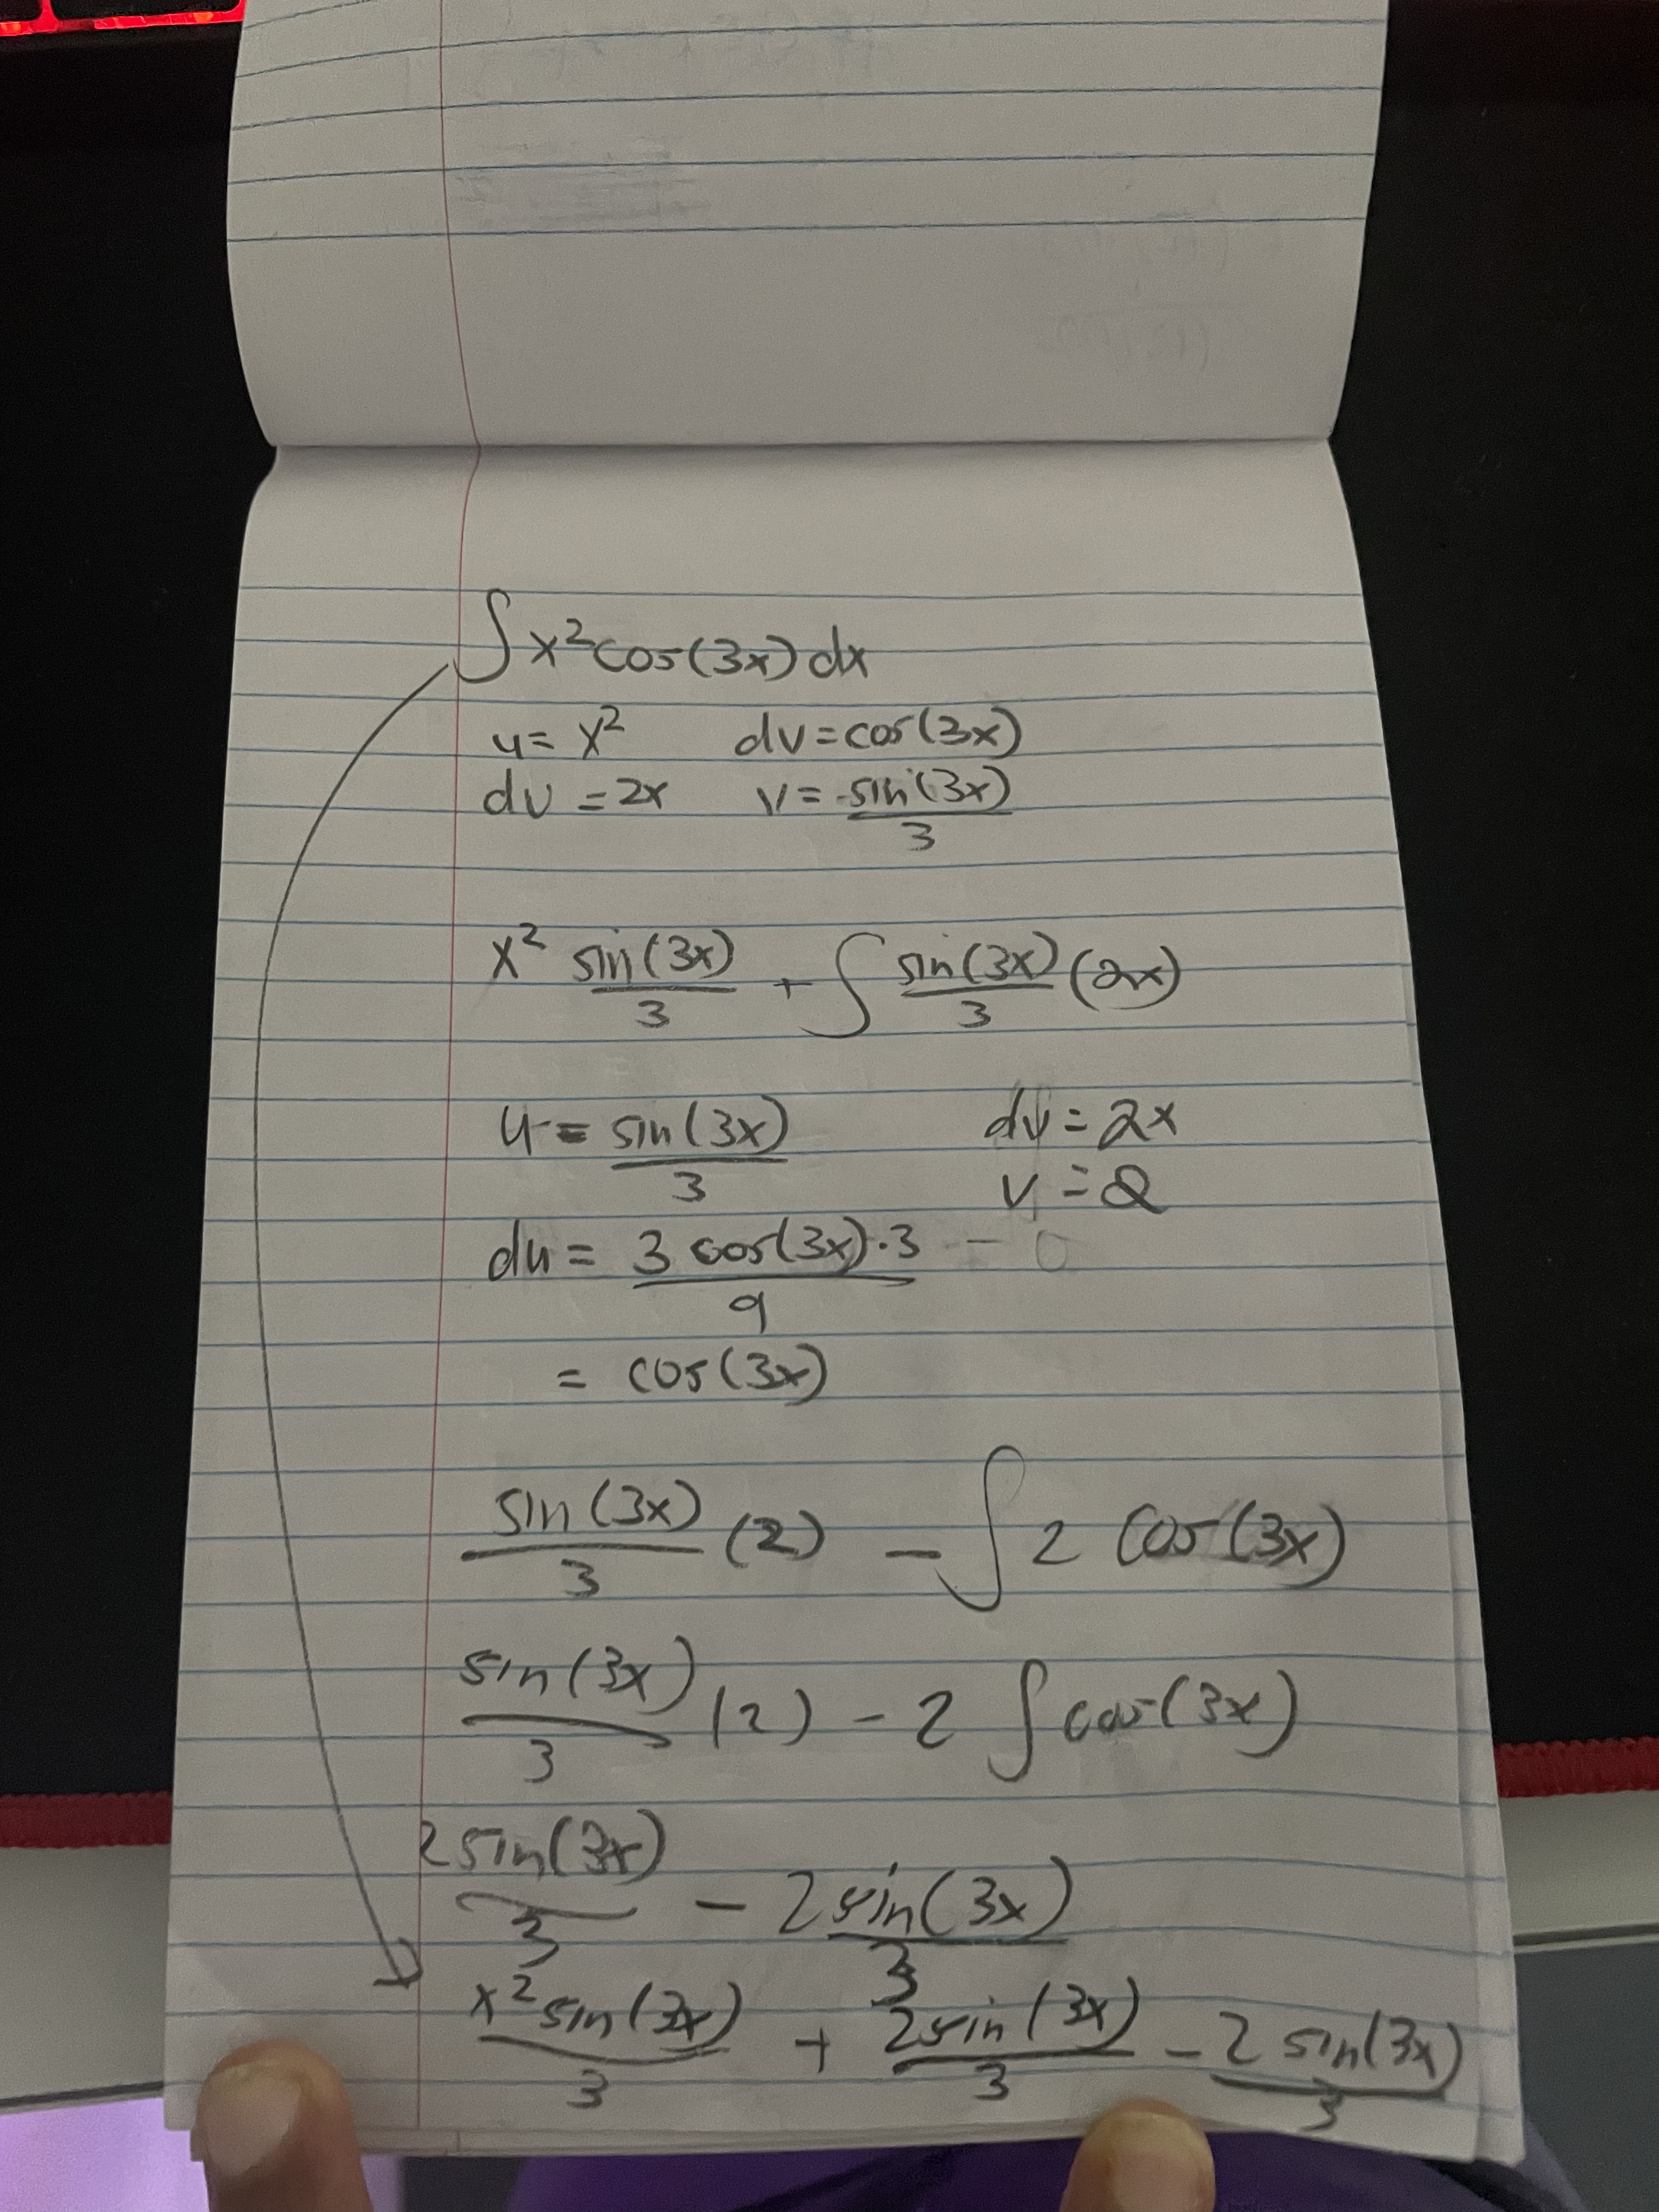 ∫ x² cos(3x) dx
u = x² dv = cos(3x)
du = 2x v = sin(3x)/3
x² sin(3x)/3 + ∫ sin(3x)/3 (2x)
u = sin(3x)/3 dv = 2x
v = 2
du = 3 cos(3x)·3 / 9
= cos(3x)
sin(3x)/3 (2) - ∫ 2 cos(3x)
sin(3x)/3 (2) - 2 ∫ cos(3x)
2sin(3x)/3 - 2 sin(3x)/3
x² sin(3x)/3 + 2sin(3x)/3 - 2 sin(3x)/3